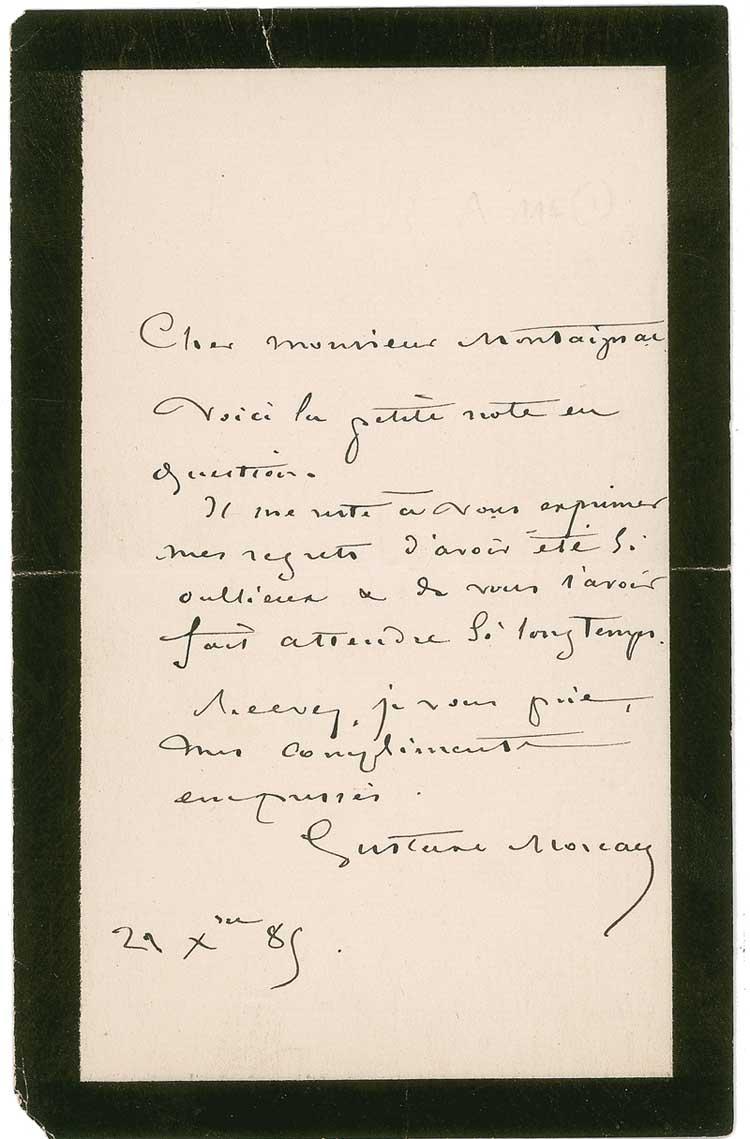 Cher monsieur Montaignac
Voici la petite note en
question.
Il me reste à vous exprimer
mes regrets d'avoir été si
oublieux & de vous l'avoir
fait attendre si longtemps.
Recevez, je vous prie,
mes compliments
empressés.
Gustave Moreau
Xbre 85.